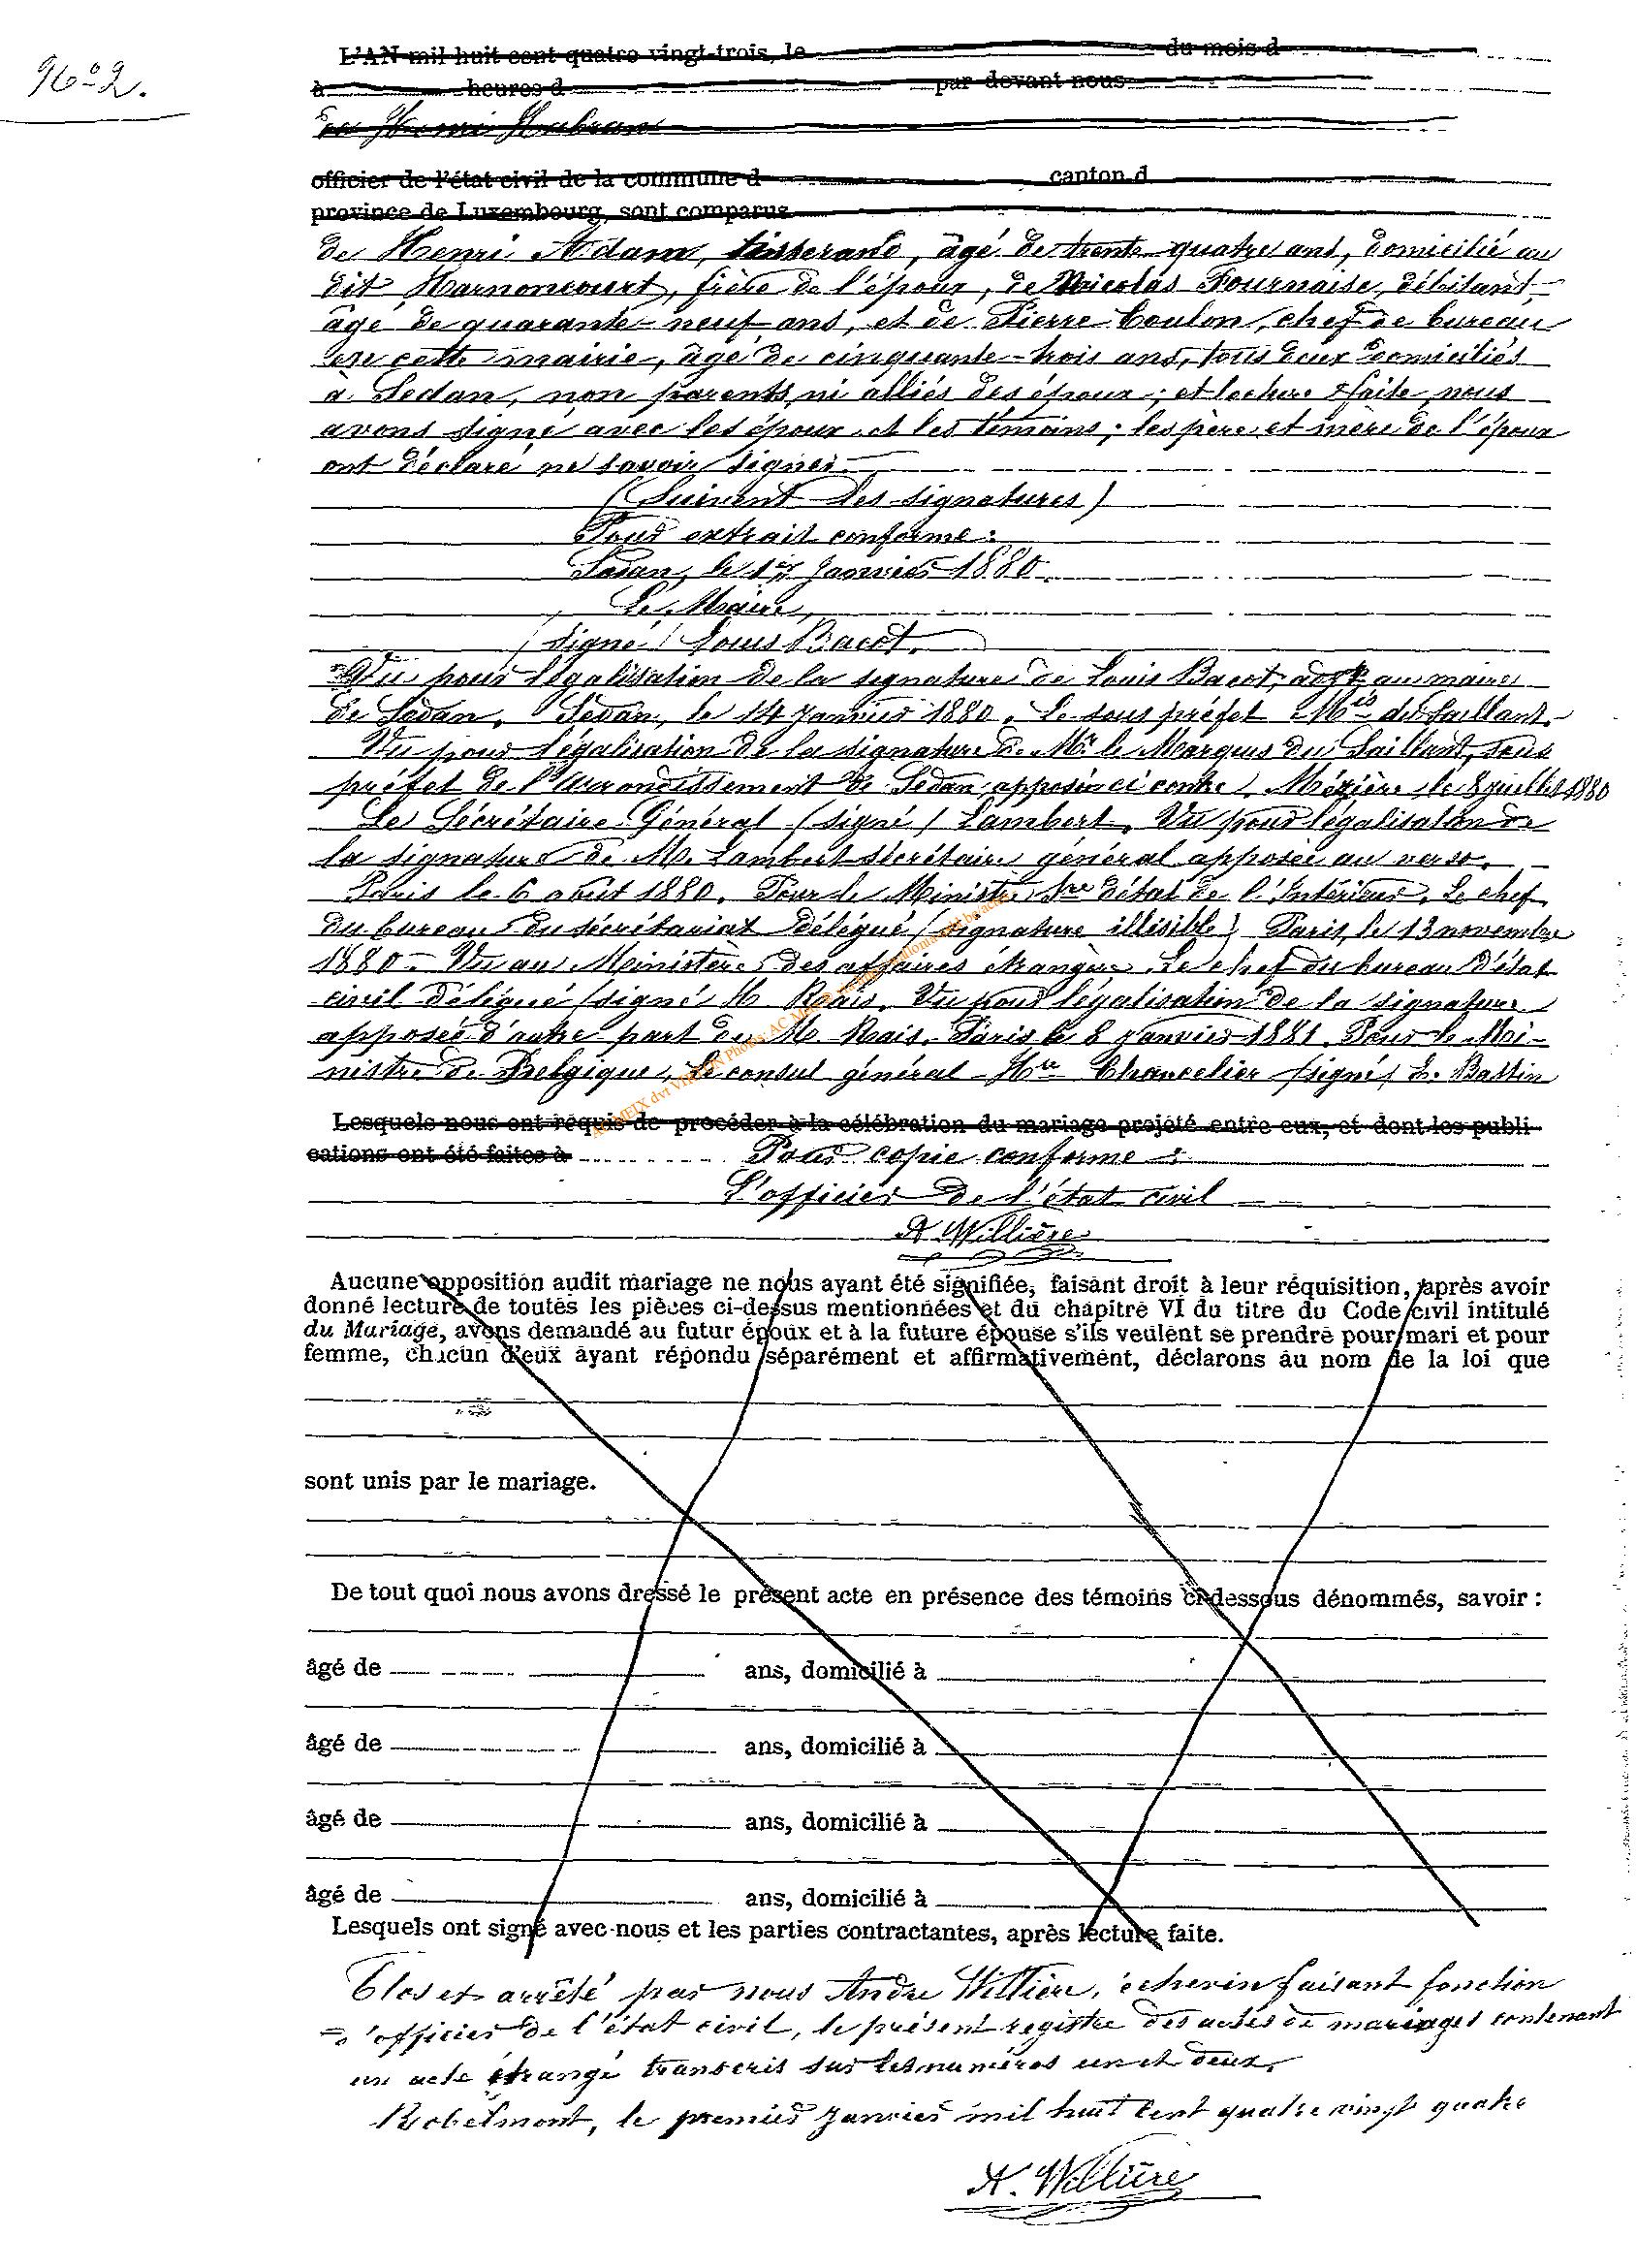 N° 2.
L'AN mil huit cent quatre vingt-trois, le du mois d
à heures d par devant nous
officier de l'état civil de la commune d canton d
province de Luxembourg, sont comparus
de Henri Adam, tisserand, âgé de trente-quatre ans, domicilié au
dit Harnoncourt, frère de l'époux, de Nicolas Fournaise, débitant,
âgé de quarante-neuf ans, et de Pierre Coulon, chef de bureau
en cette mairie, âgé de cinquante-trois ans, tous deux domiciliés
à Sedan, non parents ni alliés des époux; et lecture faite, nous
avons signé avec les époux et les témoins; les père et mère de l'époux
ont déclaré ne savoir signer.
(Suivent les signatures)
Pour extrait conforme:
Sedan, le 1er Janvier 1880.
Le Maire,
(signé) Louis Bacot.
Vu pour légalisation de la signature de Louis Bacot, adjt au maire
de Sedan. Sedan, le 14 Janvier 1880. Le sous préfet Mis du Saillant.
Vu pour légalisation de la signature de Mr le Marquis du Saillant, sous
préfet de l'arrondissement de Sedan, apposée ci contre. Mézière, le 8 juillet 1880
Le Sécrétaire Général (signé) Lambert. Vu pour légalisation de
la signature de M. Lambert secrétaire général apposée au verso.
Paris le 6 août 1880. Pour le Ministre d'état de l'Intérieur. Le chef
du bureau du sécrétariat délégué (signature illisible) Paris, le 13 novembre
1880. Vu au Ministère des affaires étrangère. Le chef du bureau d'état
civil délégué (signé) M Rais. Vu pour légalisation de la signature
apposée d'autre part de M. Rais. Paris le 8 Janvier 1881. Pour le Mi-
nistre de Belgique, Le consul général Chancelier (signé) E. Bastin
Lesquels nous ont requis de procéder à la célébration du mariage projeté entre eux, et dont les publi-
cations ont été faites à Pour copie conforme:
L'officier de l'état civil
A Willière
Aucune opposition audit mariage ne nous ayant été signifiée, faisant droit à leur réquisition, après avoir
donné lecture de toutes les pièces ci-dessus mentionnées et du chapitre VI du titre du Code civil intitulé
du Mariage, avons demandé au futur époux et à la future épouse s'ils veulent se prendre pour mari et pour
femme, chacun d'eux ayant répondu séparément et affirmativement, déclarons au nom de la loi que
sont unis par le mariage.
De tout quoi nous avons dressé le présent acte en présence des témoins ci-dessous dénommés, savoir :
âgé de ans, domicilié à
âgé de ans, domicilié à
âgé de ans, domicilié à
âgé de ans, domicilié à
Lesquels ont signé avec nous et les parties contractantes, après lecture faite.
Clos et arrêté par nous André Willière, échevin faisant fonction
d'officier de l'état civil, le présent registre des actes de mariages contenant
un acte étrangé transcris sur les numéros un et deux.
Robelmont, le premier Janvier mil huit cent quatre vingt quatre
A. Willière